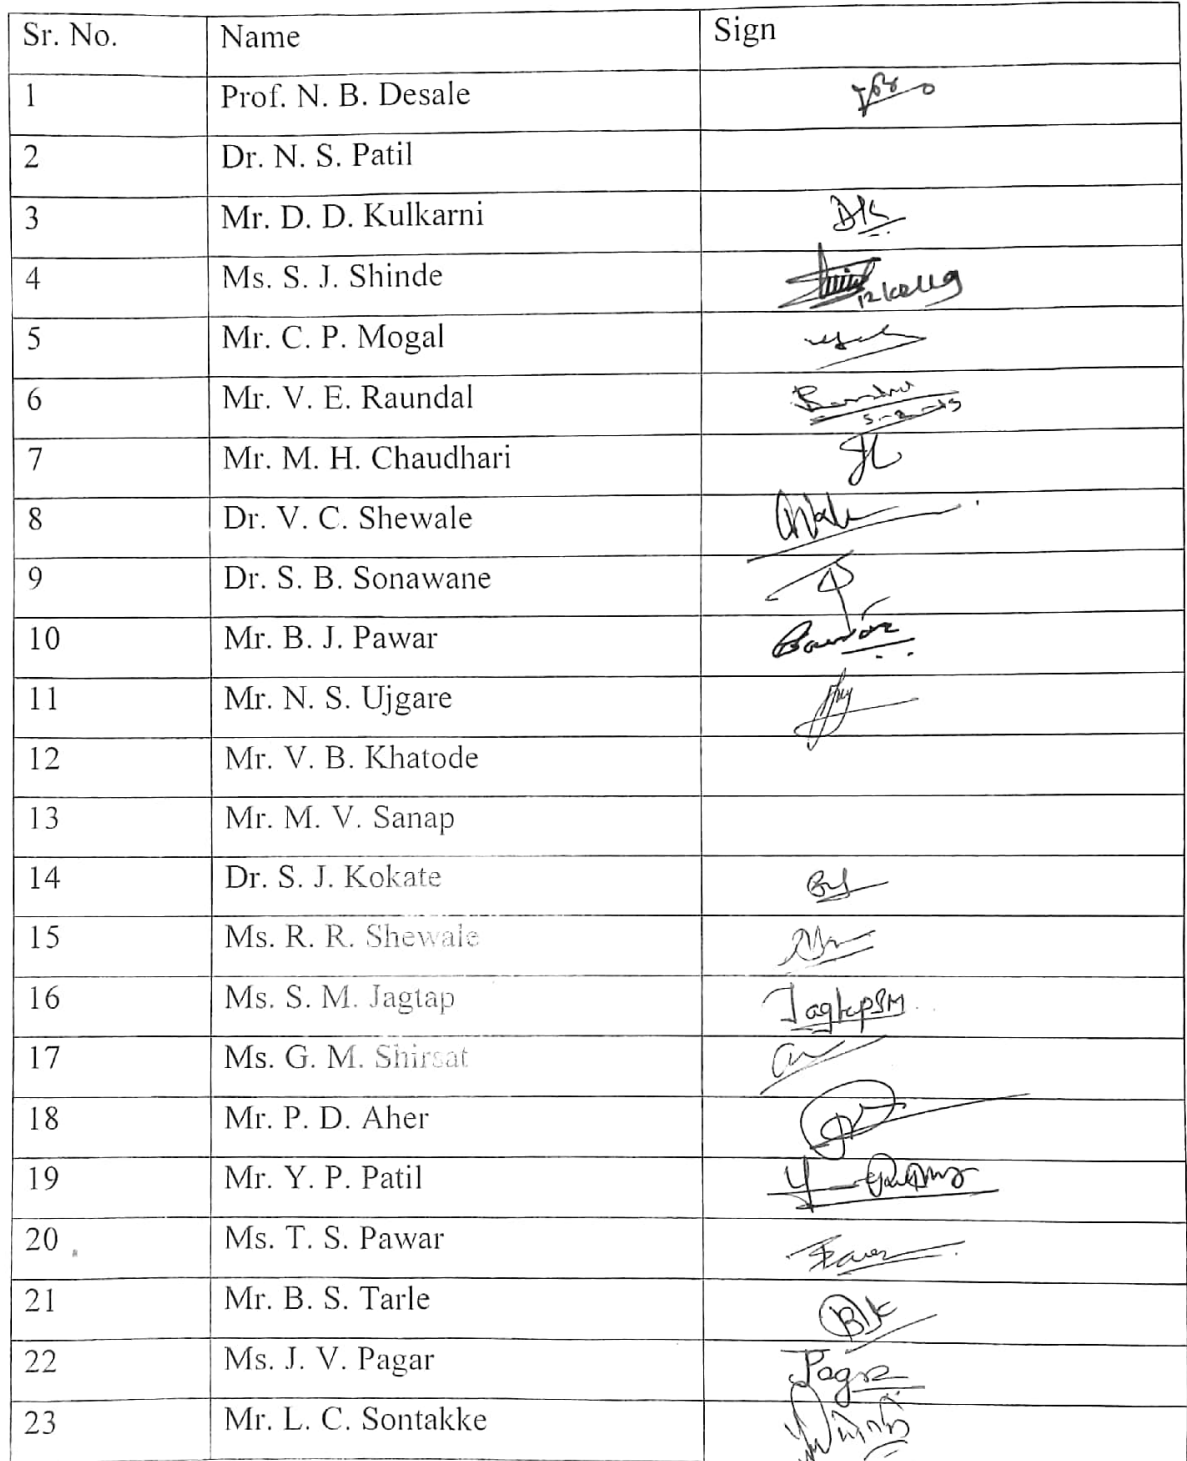 Sr. No. Name Sign
1 Prof. N. B. Desale
2 Dr. N. S. Patil
3 Mr. D. D. Kulkarni
4 Ms. S. J. Shinde
5 Mr. C. P. Mogal
6 Mr. V. E. Raundal
7 Mr. M. H. Chaudhari
8 Dr. V. C. Shewale
9 Dr. S. B. Sonawane
10 Mr. B. J. Pawar
11 Mr. N. S. Ujgare
12 Mr. V. B. Khatode
13 Mr. M. V. Sanap
14 Dr. S. J. Kokate
15 Ms. R. R. Shewale
16 Ms. S. M. Jagtap JagtapSM
17 Ms. G. M. Shirsat
18 Mr. P. D. Aher
19 Mr. Y. P. Patil
20 Ms. T. S. Pawar
21 Mr. B. S. Tarle
22 Ms. J. V. Pagar
23 Mr. L. C. Sontakke